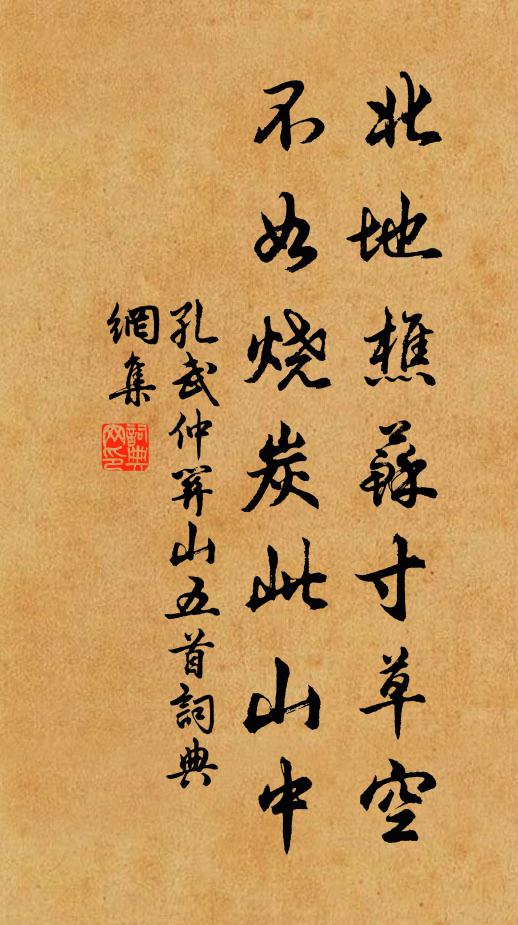 北地樵蘇寸草空
不如烧炭此山中
孔武仲山五首詞典
網集
詞典
网印